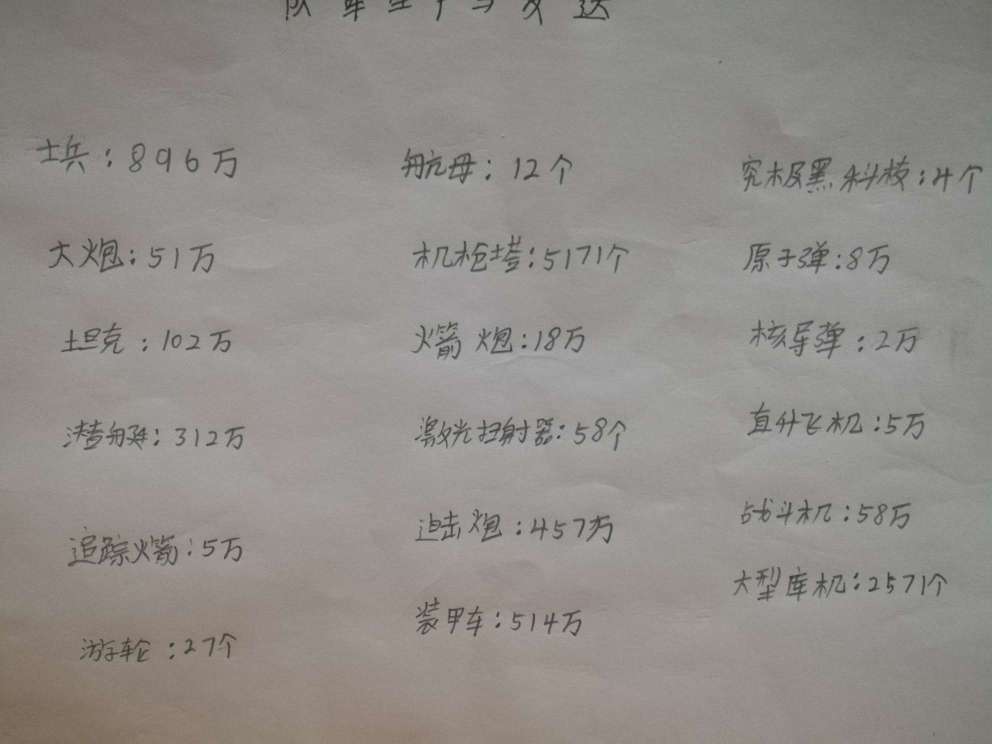 士兵：896万
航母：12个
究极黑科技：4个
大炮：51万
机枪塔：5171个
原子弹：8万
坦克：102万
火箭炮：18万
核导弹：2万
潜艇：312万
激光扫射器：58个
直升飞机：5万
追踪火箭：5万
迫击炮：457万
战斗机：58万
游轮：27个
装甲车：514万
大型库机：2571个